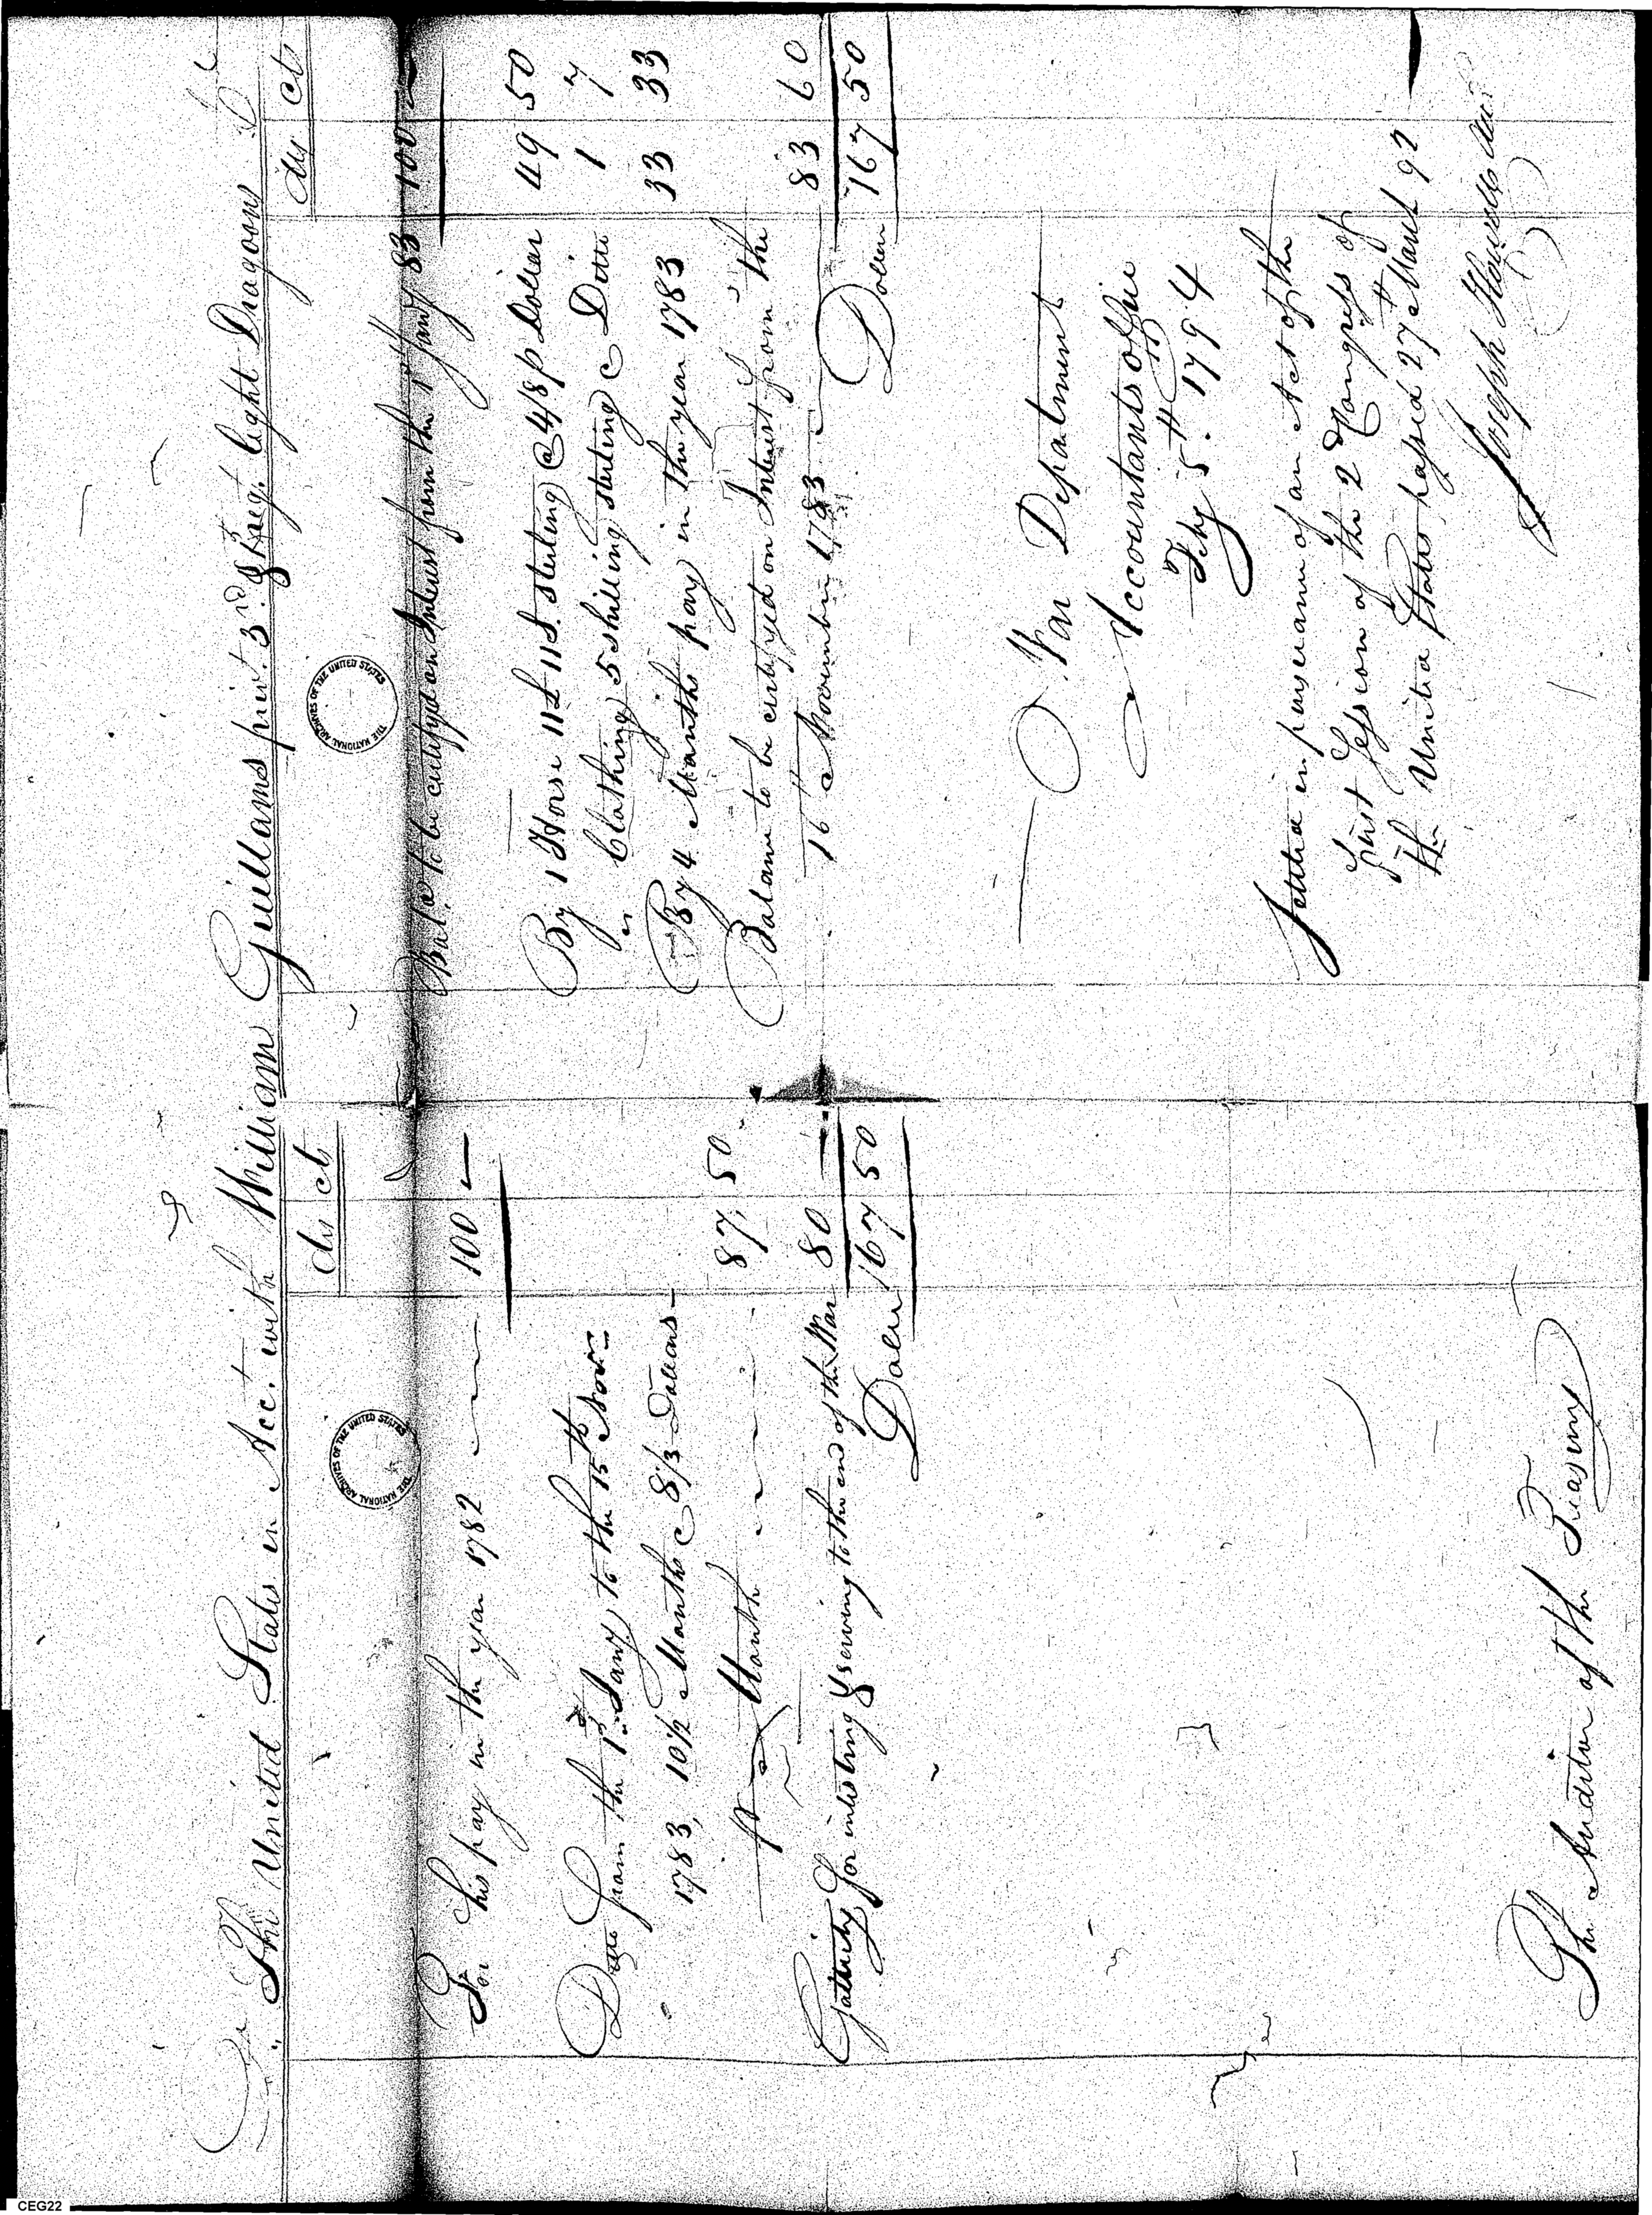 Dr The United States in Acct. with William Guillams privt. 3rd. Regt. Light Dragoons Cr
dls cts
For his pay in the year 1782 100 —
Ditto from the 1st Jany to the 15th Novr.
1783, 10½ Months @ 8⅓ Dollars
p Month 87, 50
Gatuity for inlisting & serving to the end of the War 80 —
Dollrs 167 50
The Auditor of the Treasury
dls cts
Bale. to be certifyed on Interest from the 1st Jany 83 100 —
By 1 Horse 11£ 11S. Sterling @ 4/8 p Dollar 49 50
" Clothing 5 Shillings Sterling @ Ditto 1 7
By 4 Months pay in the year 1783 33 33
Balance to be certifyed on Interest from the
16th November 1783 83 60
Dollrs 167 50
War Department
Accountants Office
Feby 5th. 1794
Settled in pursuance of an Act of the
first Session of the 2d Congress of
the United States, passed 27th March 92
Joseph Howell
THE NATIONAL ARCHIVES OF THE UNITED STATES
THE NATIONAL ARCHIVES OF THE UNITED STATES
CEG22